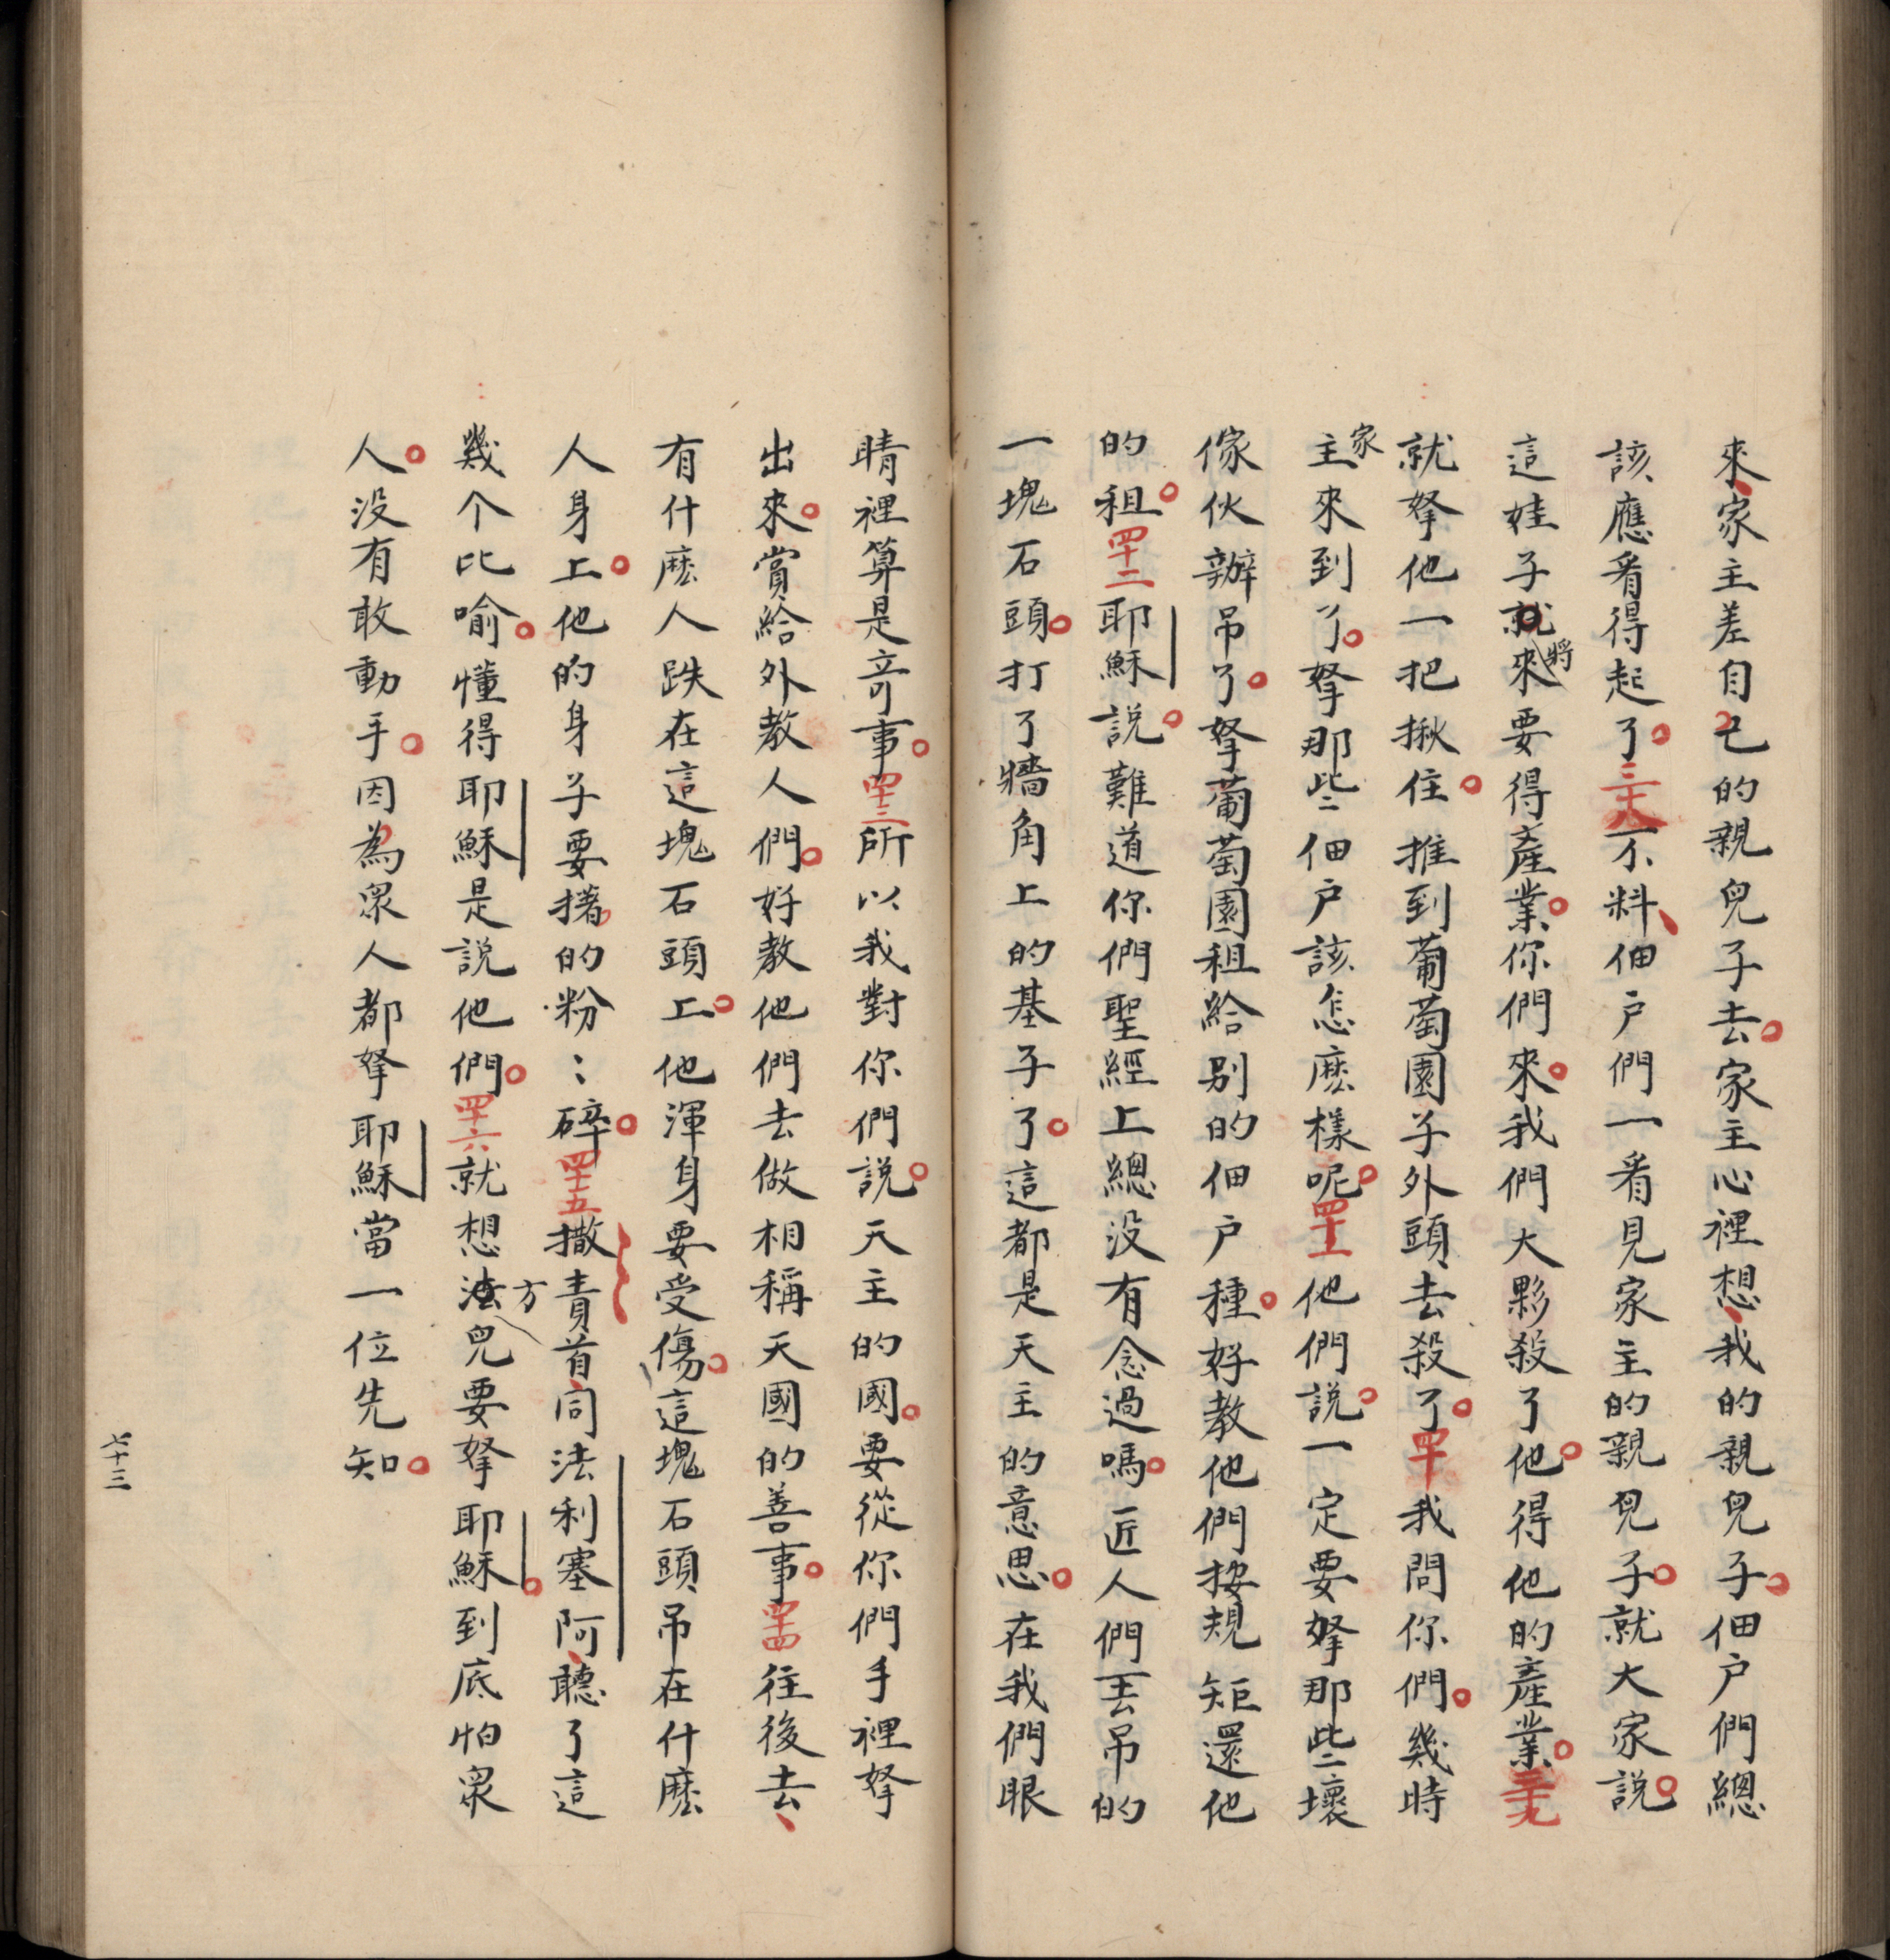 來家主差自己的親兒子去家主心裡想我的親兒子佃户們總
該應看得起了三十八不料佃户們一看見家主的親兒子就大家說
這娃子就將來要得產業你們來我們大夥殺了他得他的產業三十九
就拏他一把揪住推到葡萄園子外頭去殺了四十我問你們幾時
家主來到了拏那些佃户該怎麽樣呢四十一他們說一定要拏那些壞
傢伙辦吊了拏葡萄園租給别的佃户種好教他們按規矩還他
的租四十二耶穌說難道你們聖經上總没有念過嗎匠人們丟吊的
一塊石頭打了牆角上的基子了這都是天主的意思在我們眼
睛裡算是竒事四十三所以我對你們說天主的國要從你們手裡拏
出來賞給外教人們好教他們去做相稱天國的善事四十四往後去
有什麽人跌在這塊石頭上他渾身要受傷這塊石頭吊在什麽
人身上他的身子要撦的粉〻碎四十五撒責首同法利塞阿聽了這
幾个比喻懂得耶穌是説他們四十六就想方法兒要拏耶穌到底怕衆
人没有敢動手因為衆人都拏耶穌當一位先知
七十三